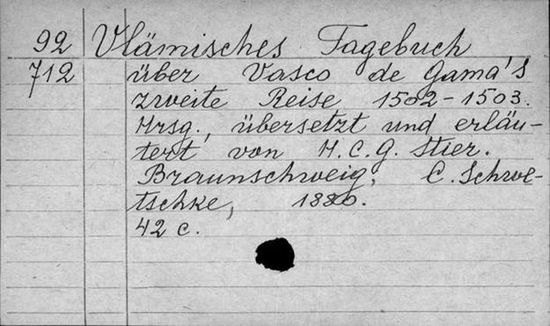 92 Vlämisches Tagebuch
712 über Vasco de Gama's
zweite Reise 1502-1503.
Hrsg., übersetzt und erläu-
tert von H.C.G. Stier.
Braunschweig, C. Schwe-
tschke, 1880.
42 c.